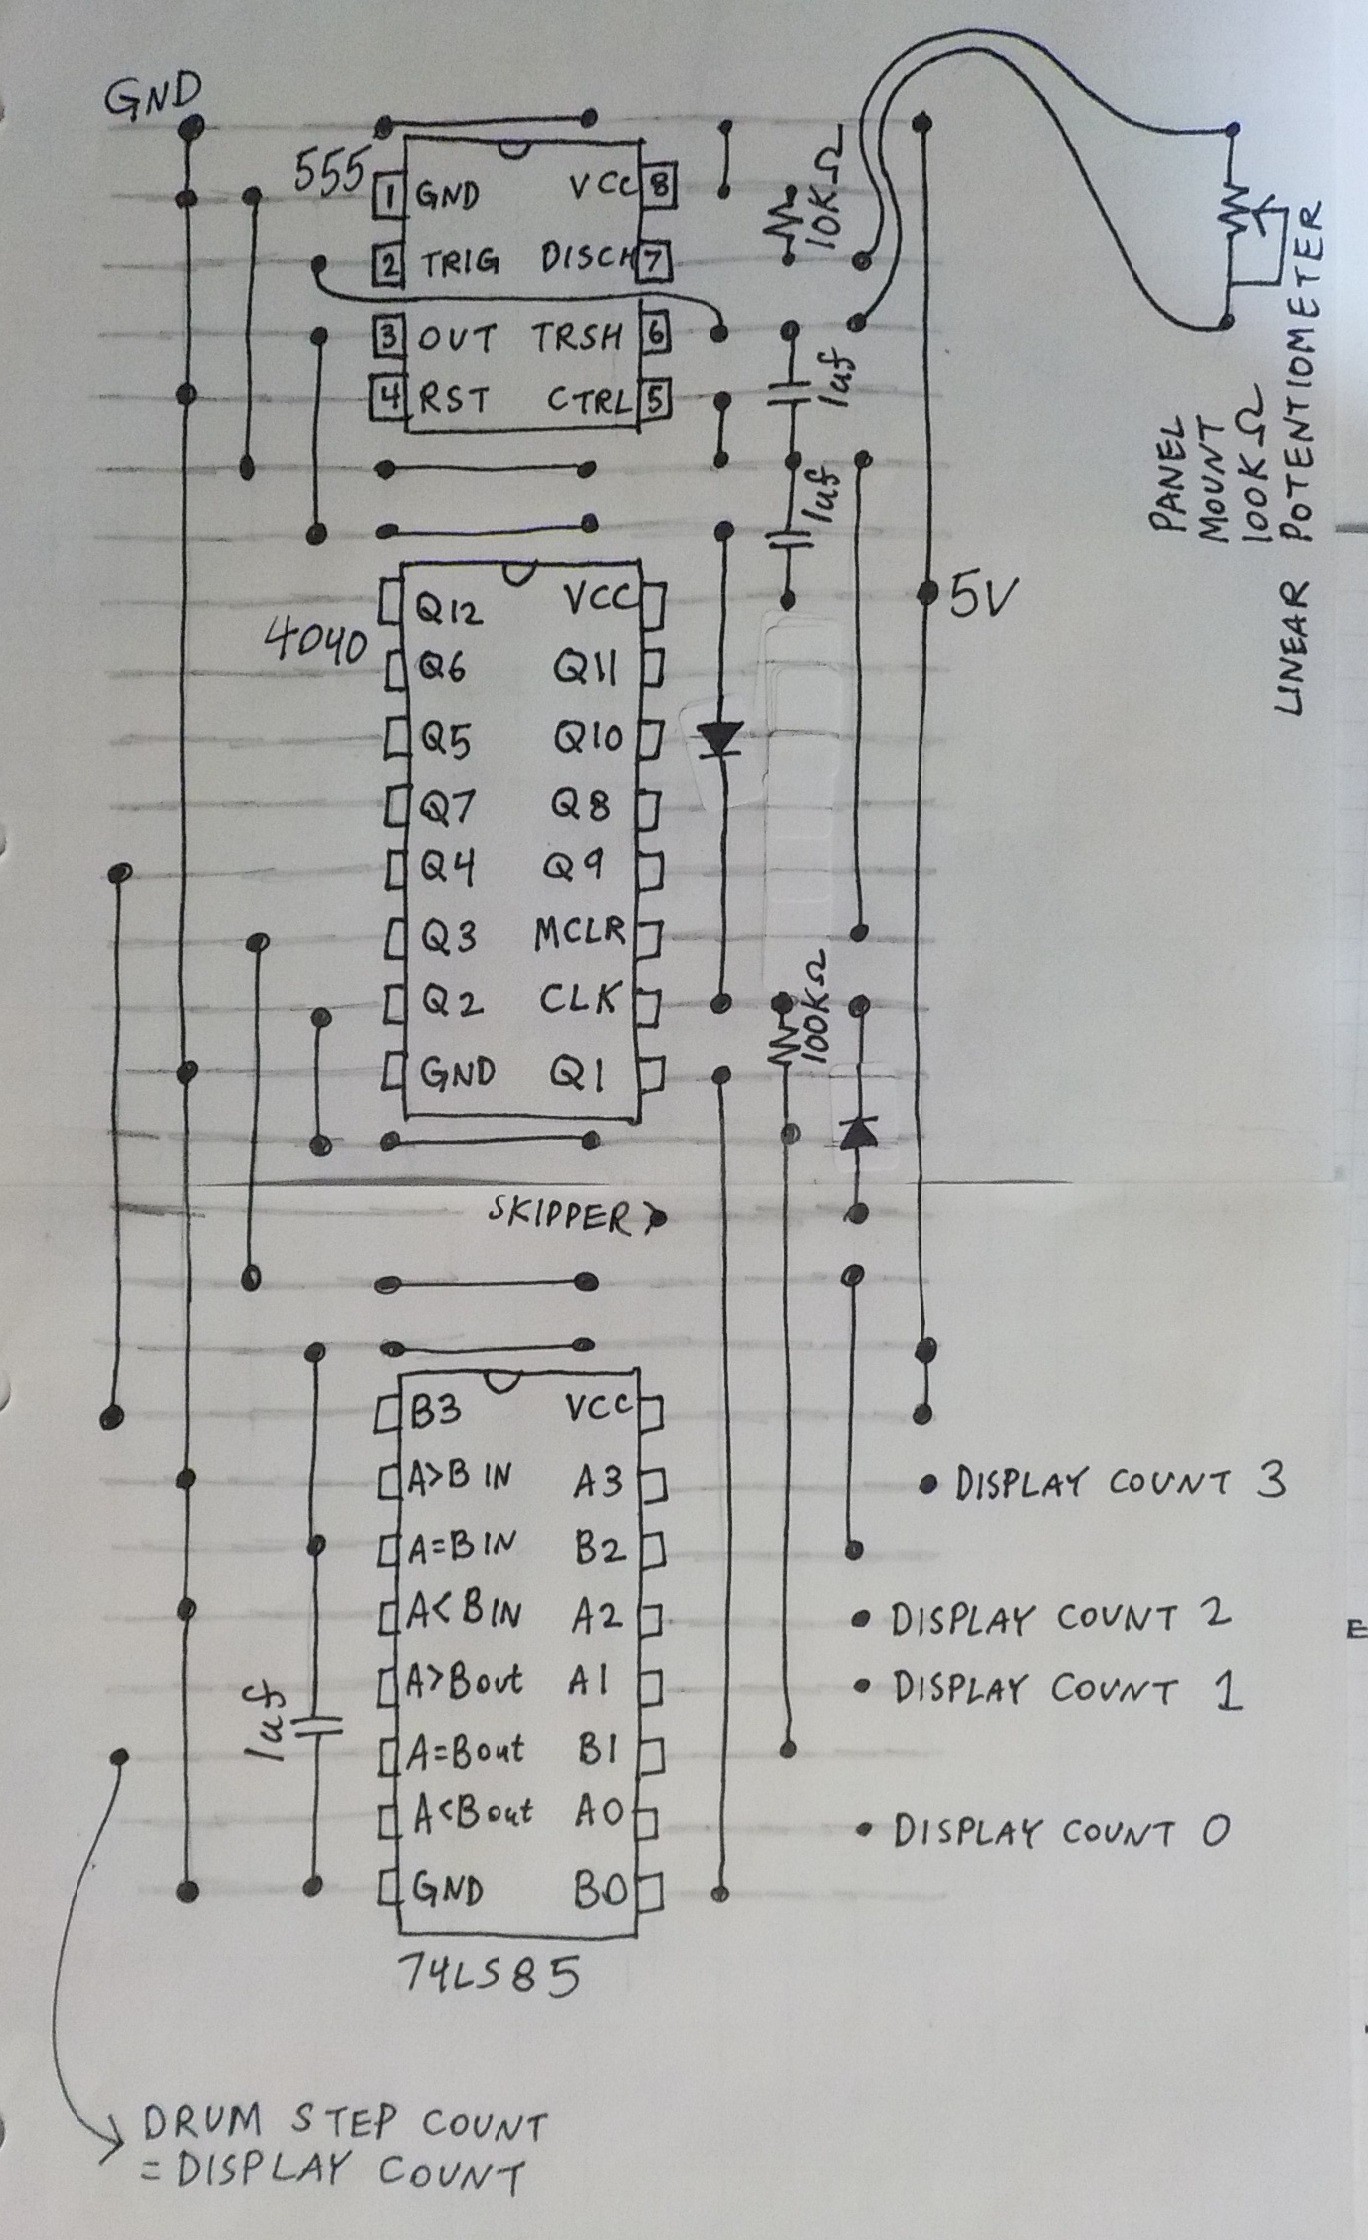 GND
555
1 GND VCC 8
2 TRIG DISCH 7
3 OUT TRSH 6
4 RST CTRL 5
10KΩ
1uf
1uf
PANEL
MOUNT
100KΩ
LINEAR POTENTIOMETER
5V
4040
Q12 VCC
Q6 Q11
Q5 Q10
Q7 Q8
Q4 Q9
Q3 MCLR
Q2 CLK
GND Q1
100KΩ
SKIPPER >
B3 VCC
A>B IN A3
A=B IN B2
A<B IN A2
A>Bout A1
A=Bout B1
A<Bout A0
GND B0
DISPLAY COUNT 3
DISPLAY COUNT 2
DISPLAY COUNT 1
DISPLAY COUNT 0
1uf
74LS85
DRUM STEP COUNT
= DISPLAY COUNT
E